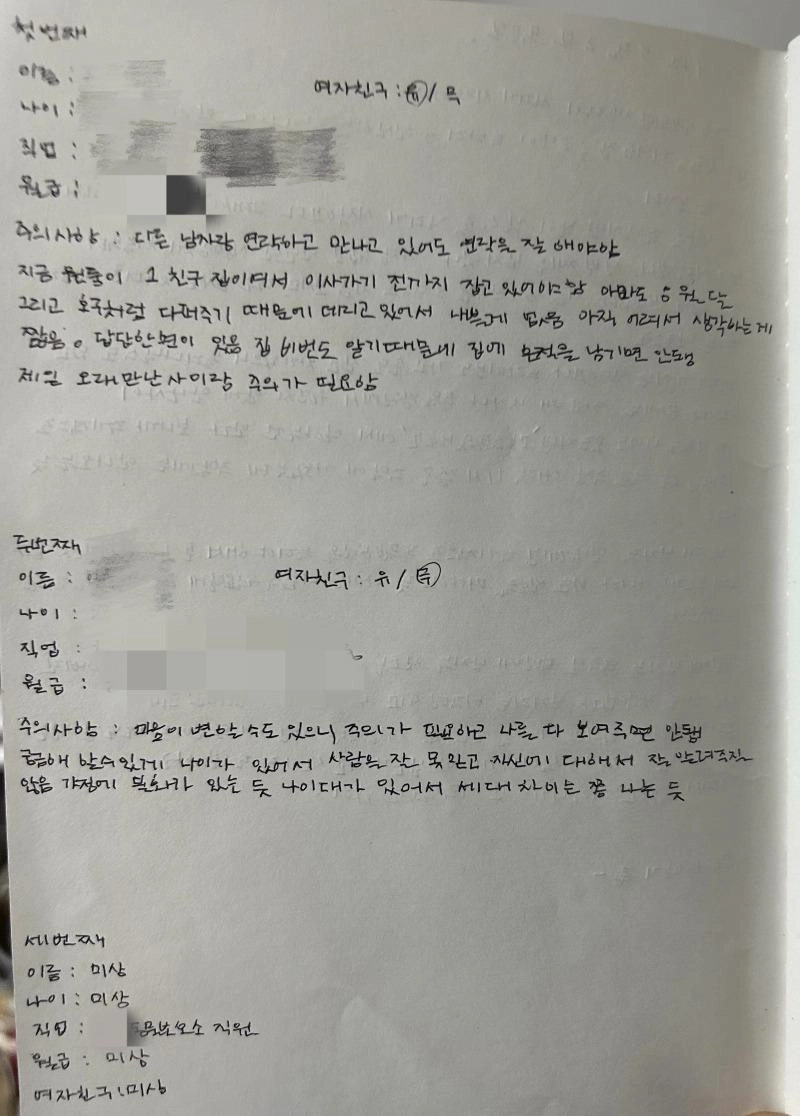 첫번째
이름 :
여자친구 : 유 / 무
나이 :
직업 :
월급 :
주의사항 : 다른 남자랑 연락하고 만나고 있어도 연락을 잘 해야함
지금 원룸이 그 친구 집이여서 이사가기 전까지 잡고 있어야함 아마도 5월달
그리고 호구처럼 다퍼주기 때문에 데리고 있어서 나쁠게 없음 아직 어려서 생각하는게
짧음. 답답한면이 있음 집 비번도 알기때문에 집에 흔적을 남기면 안됌
제일 오래만난사이라 주의가 필요함
두번째
이름 :
여자친구 : 유 / 무
나이 :
직업 :
월급 :
주의사항 : 마음이 변할수도 있으니 주의가 필요하고 나를 다 보여주면 안됌
궁금해 할수있게 나이가 있어서 사람을 잘 못믿고 자신에 대해서 잘 알려주진
않음 가정에 불화가 있는 듯 나이대가 있어서 세대차이는 쫌 나는 듯
세번째
이름 : 미상
나이 : 미상
직업 : 직원
월급 : 미상
여자친구 : 미상